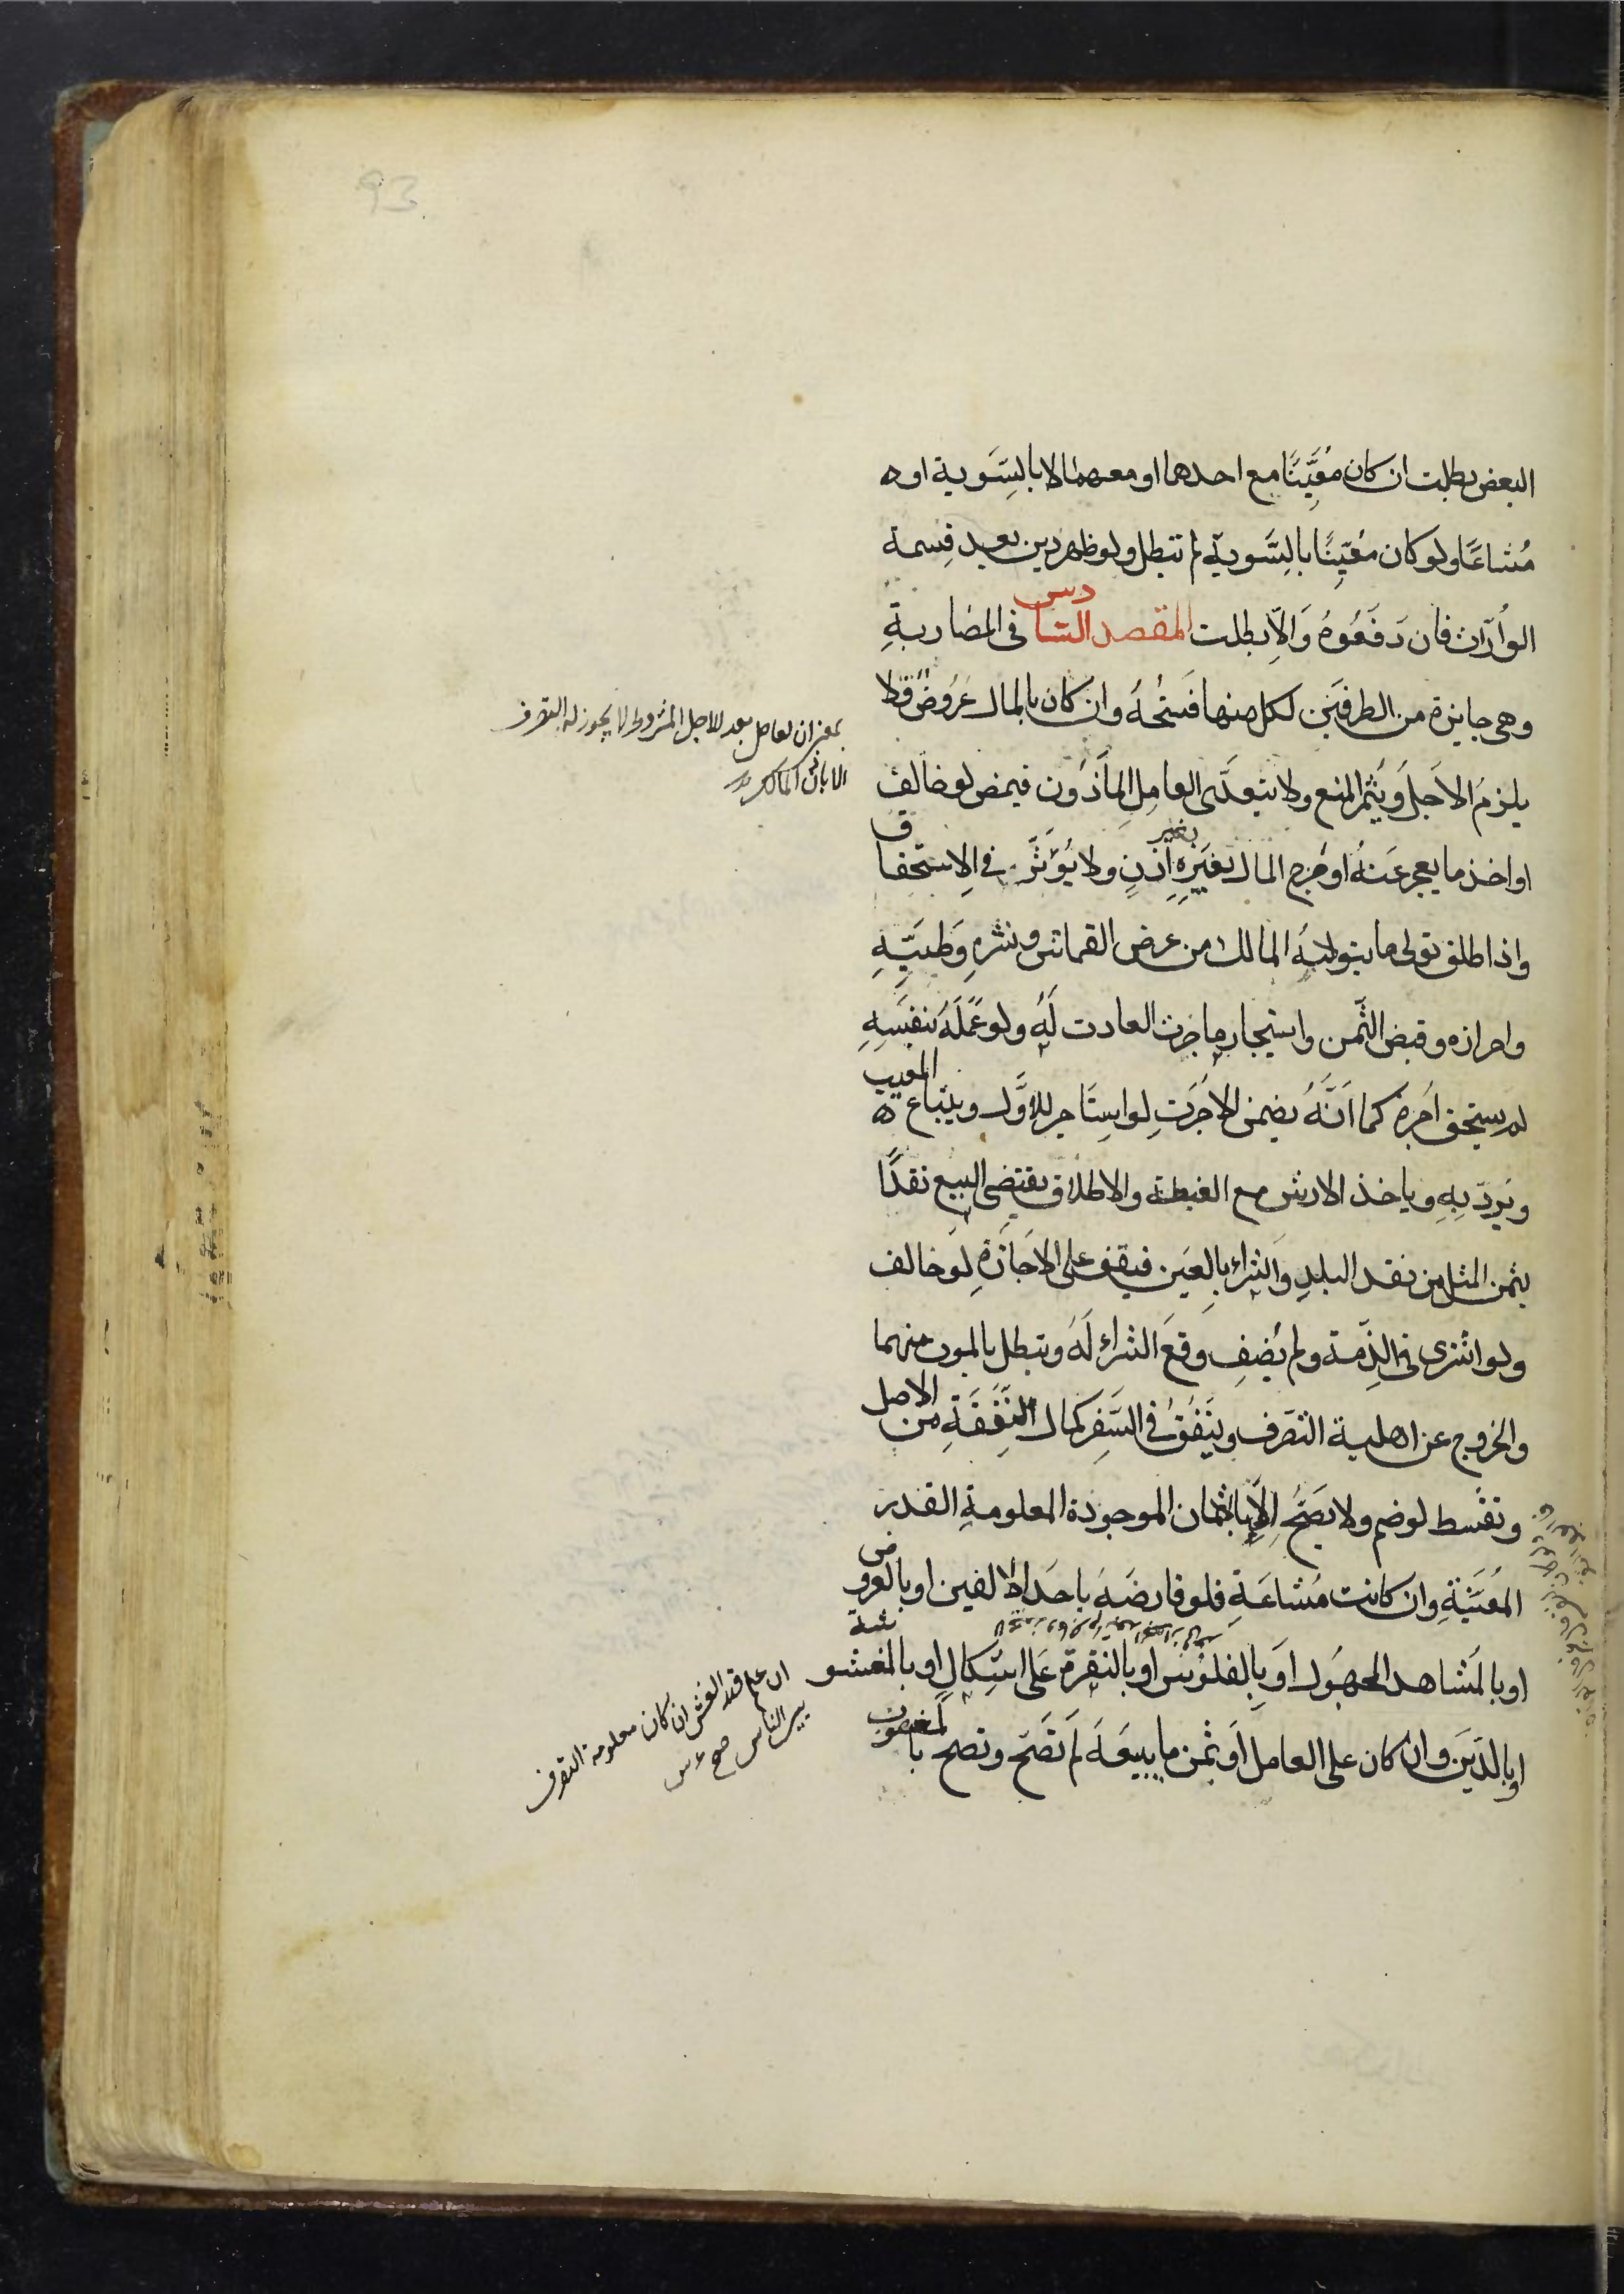 93
البعض بطلت ان كان مُعَيَّنًا مع احدهما او معهما لا بالتسَوية او
مُشاعًا ولو كان مُعَيّنًا بالتَّسَوية لم تبطل ولو ظهر دين بعد قسمة
الوُرّاث فان دَفَعُوهُ وَالّا بطلت المقصد السّادس فى المضاربةِ
وهى جايزة من الطرفَين لكل منهما فَسْخُهُ وان كان بالمال عَرُوضٌ ولا
يلزمُ الاَجلُ ويُثمر المنع ولا يتعدَّى العامِل المأذون فيضمن لو خالف
او اخذ ما يعجز عَنهُ او مزج المال بغَيره بغير اذنٍ ولا يُؤثّر فى الاستحقاق
واذا اطلق تولى ما يتولاهُ المالك من عرض القماش ونشرهِ وَطيّهِ
واحرازه وقبض الثَّمن واستيجار ما جرت العادت لَهُ ولو عَمِلَهُ بنفسِهِ
لم يستحق اُجرة كما اَنَّهُ يضمن الاجُرَتِ لو استَاجر للاَوَّل ويبتَاع المعيب
ويَردّ بِهِ وياخذ الارش مع الغبطة والاطلاق يقتضى البيع نقدًا
بثمن المثل من نقد البلدِ وَالشراء بالعَين فيقف على الاجَازَةِ لَو خالف
ولو اشترى فى الذِّمة ولم يُضِف وقعَ الشراء لَهُ وتبطل بالموت منهما
والخروج عن اهلية التصَرف ويَنفُقُ فى السَفِر كمال النَّفَقَةِ من الاصل
وتقسّط لو ضم ولا يَصَحُّ اِلّا بالاثمان الموجودة المعلومةِ القدر
المُعَيَّنَةِ وان كانت مُشاعَةِ فلو قارضَهَ باحَد الالفين او بالعروض
او بالمَشاهد المجهُول اوَ بِالفلوُس او بالنقرة عَلى اشكالٍ او بالمغشوشة
او بالدَين وان كان على العامل اَو بثمن ما يبيعَهَ لَم تَصَح وتصح بالمغصُوب
بمعنى ان العامل بعد الاجل المشروط لا يجوز له التصرف
الا باذن المالك
ان علم قدر الغش ان كان معلومة التصرف
بين الناس صح